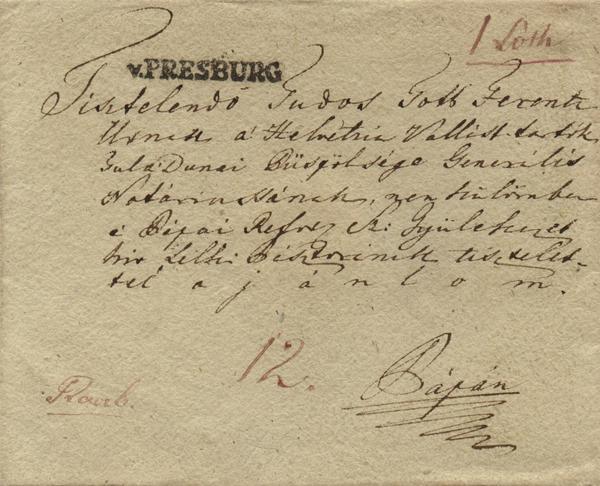 1 Loth
v. PRESBURG
Tisztelendő Tudos Toth Ferentz
Urnak á Helvétziai Vallást tartók
Dunai Püspöksége Generális
Notáriussának, nem külömben
á Pápai Refor Gyülekezet
Lelki Pásztorának tisztelet-
tel ajánlom.
12.
Raab.
Pápán